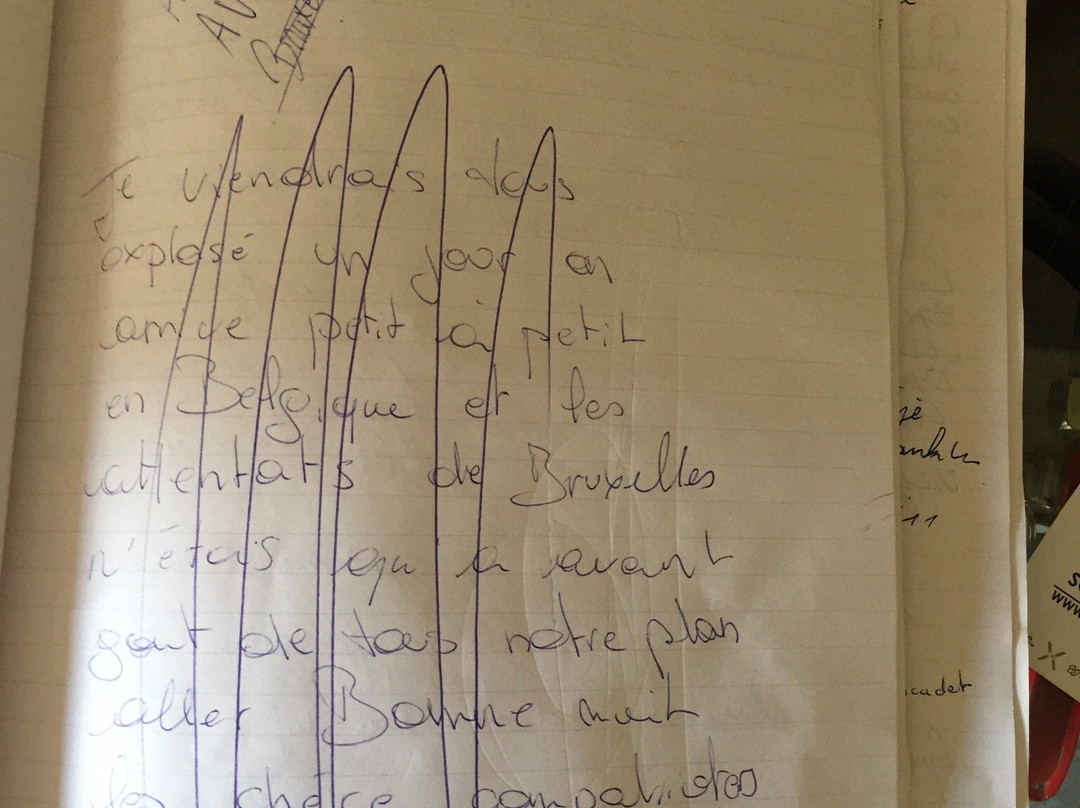 AV
Je viendrais tous
explosé un jour on
arrive petit à petit
en Belgique et les
attentats de Bruxelles
n'étais qu a avant
gout de tous notre plan
aller Bonne nuit
les chère compatriotes
cadet
www